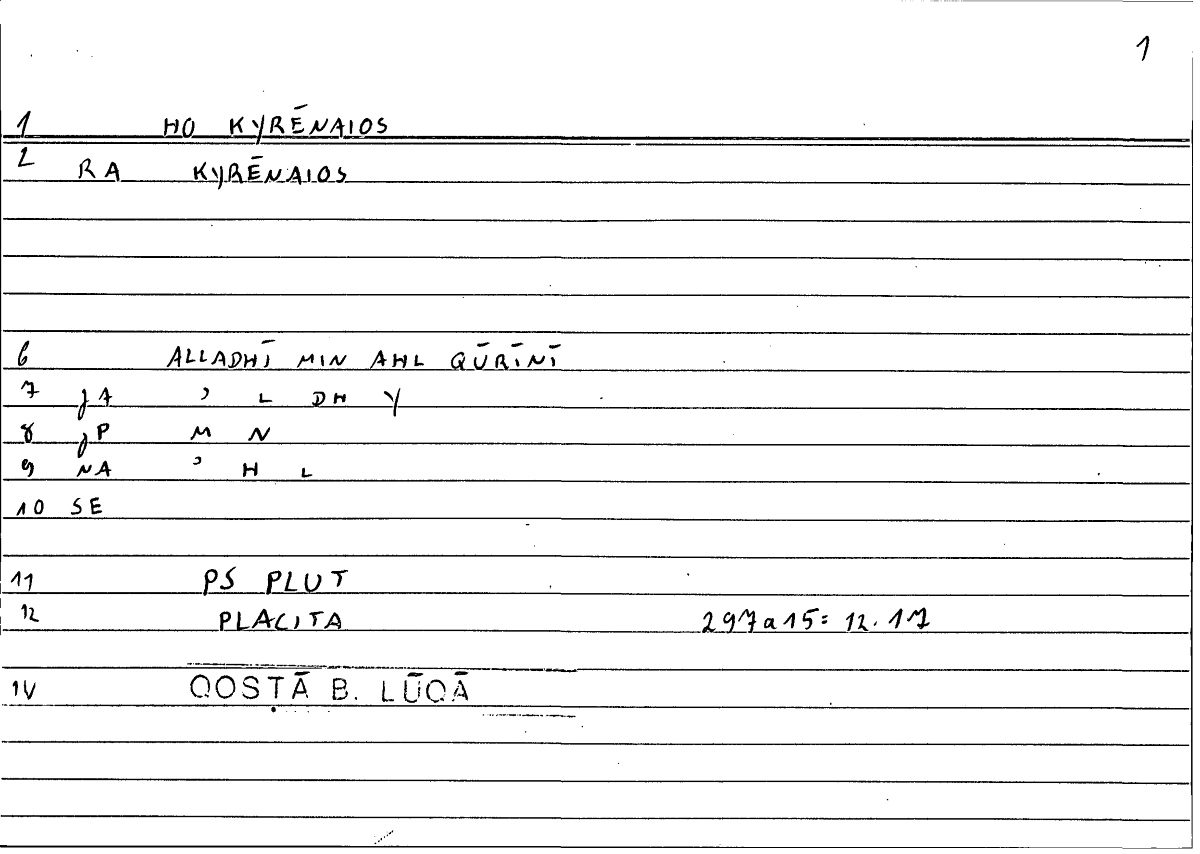 1
1 HO KYRĒNAIOS
2 RA KYRĒNAIOS
6 ALLADHĪ MIN AHL QŪRĪNĪ
7 JA ʾ L DH Y
8 JP M N
9 NA ʾ H L
10 SE
11 PS PLUT
12 PLACITA 297a15 = 12.17
14 QOSṬĀ B. LŪQĀ